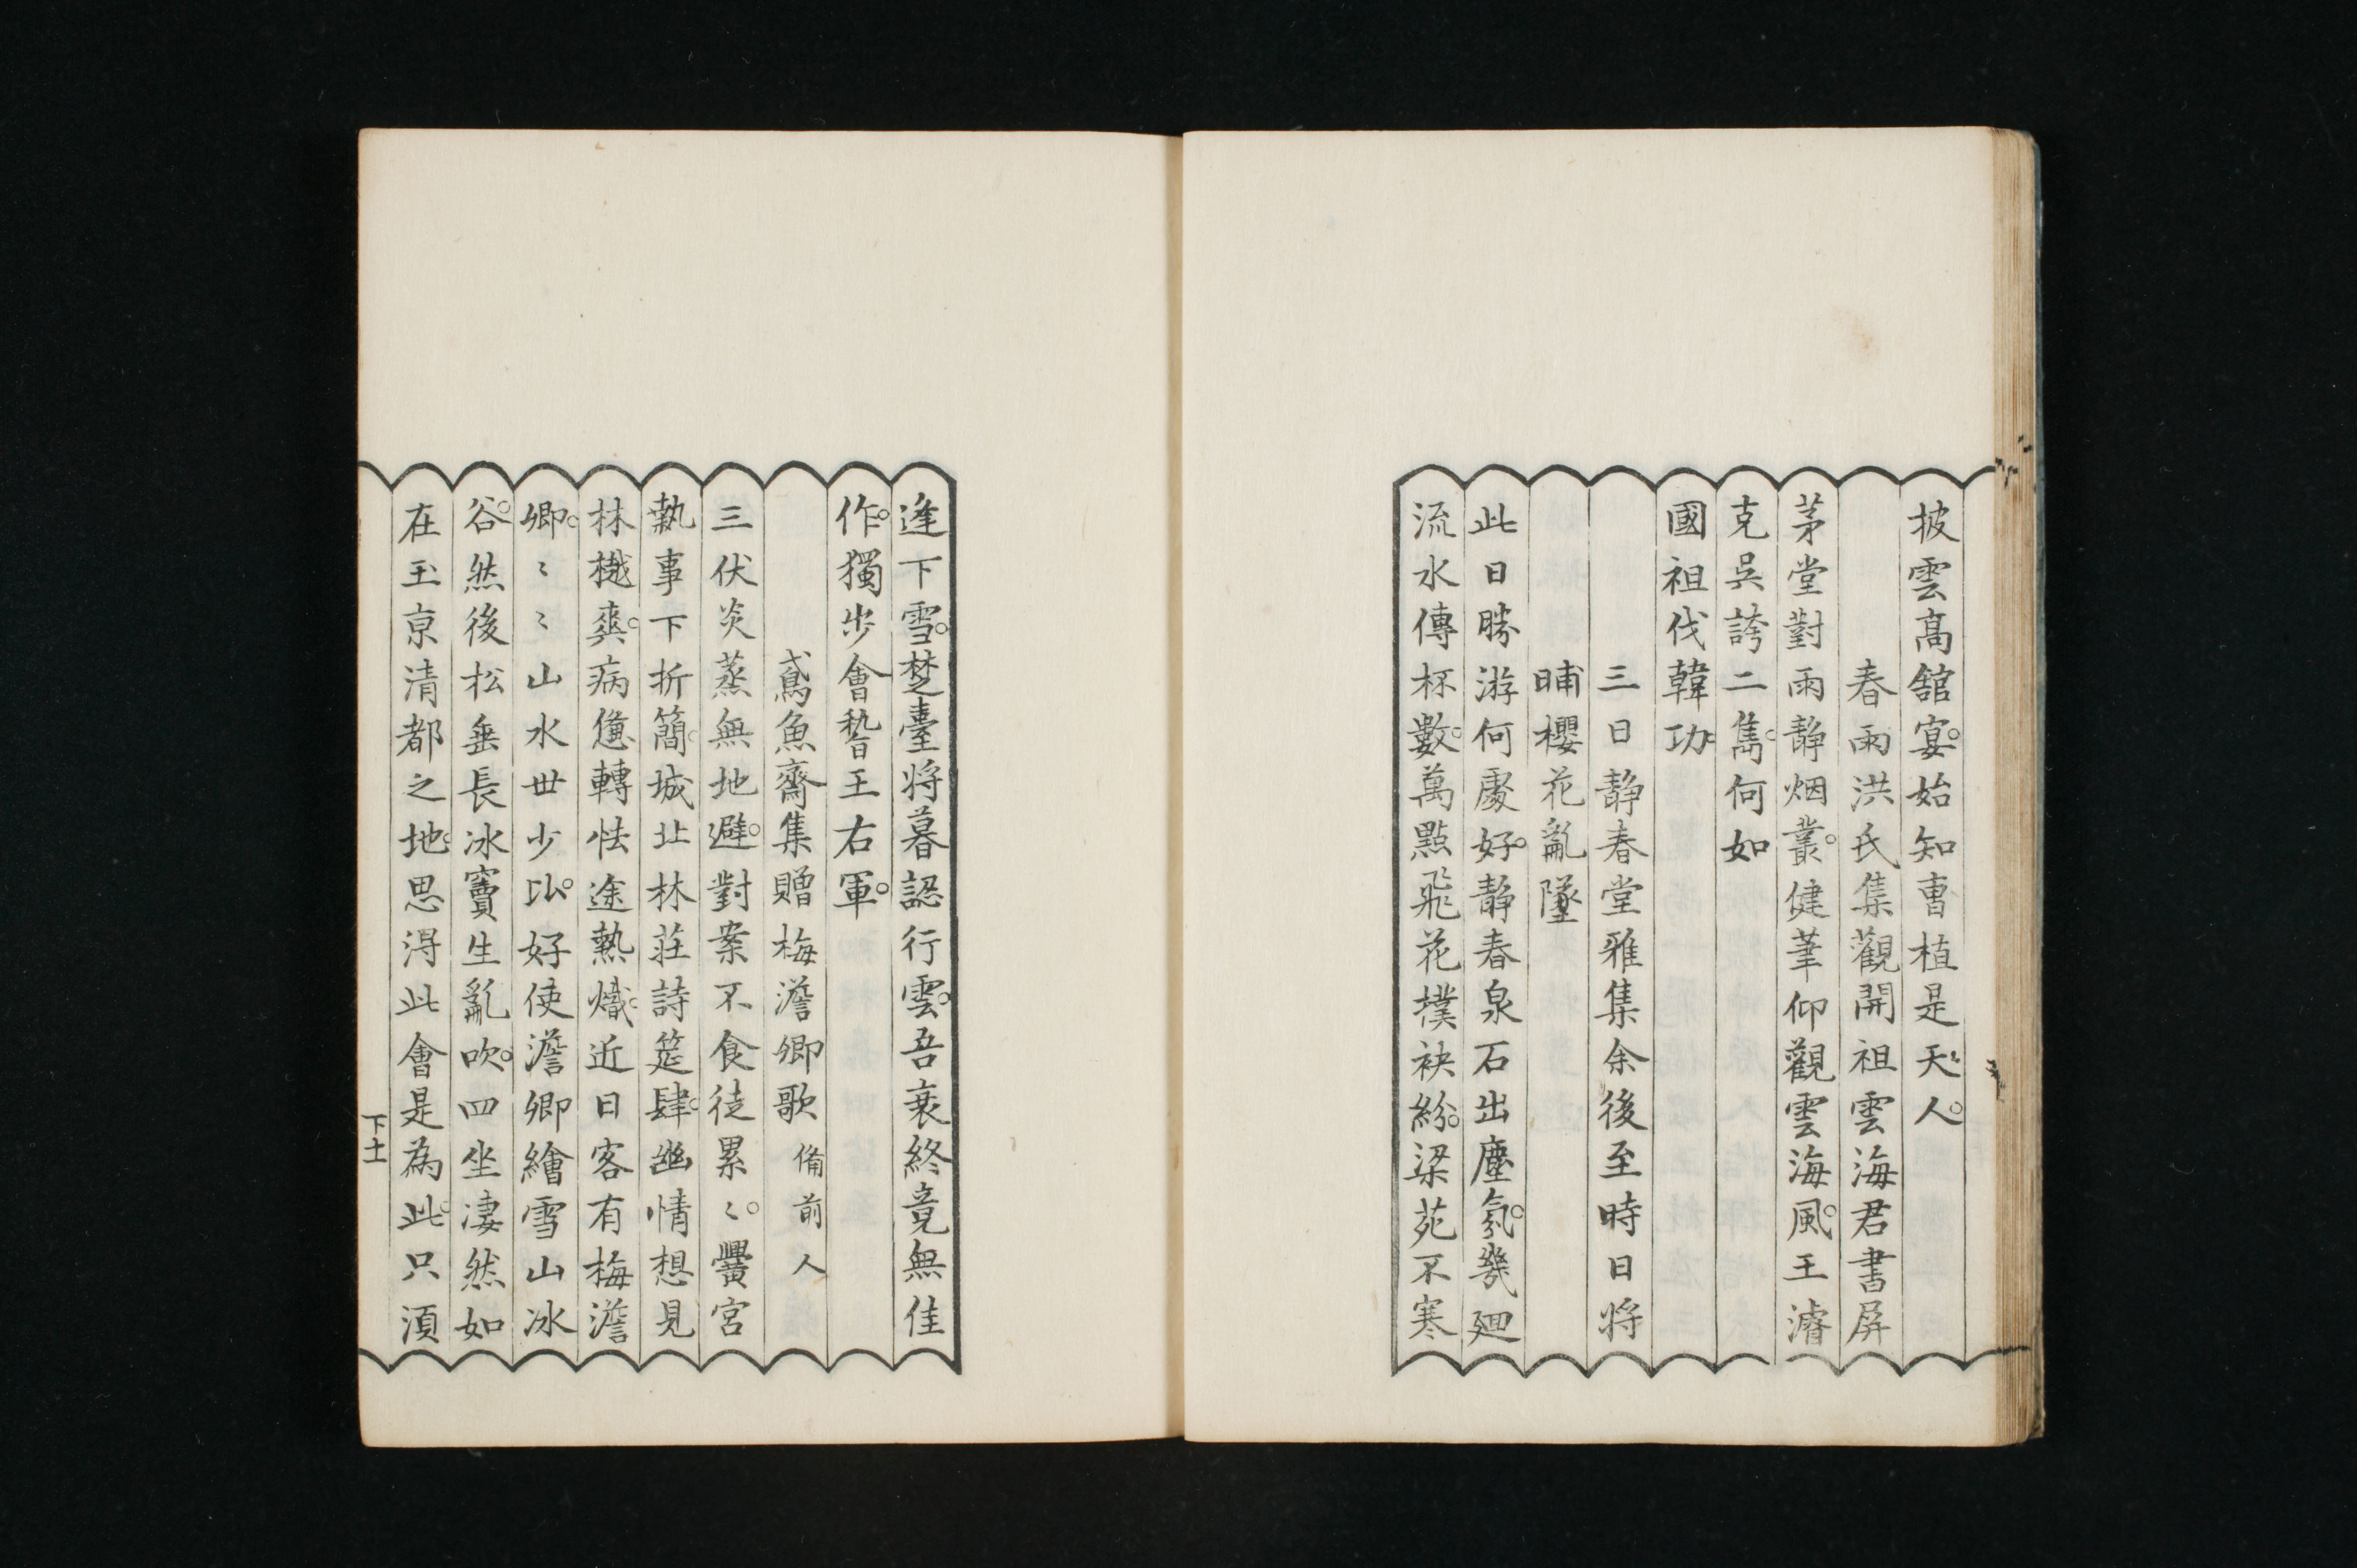 披雲高舘宴。始知曺植是天人。
春雨洪氏集觀開祖雲海君書屏
茅堂對雨静烟叢。健筆仰觀雲海風。王濬
克吳誇二雋。何如
國祖伐韓功。
三日静春堂雅集余後至時日将
晡櫻花亂墜
此日勝游何處好。静春泉石出塵氛。幾廻
流水傳杯數。萬點飛花撲袂紛。梁苑不寒
逢下雪。楚臺将暮認行雲。吾衰終竟無佳
作。獨步會稽王右軍。
鳶魚齋集贈梅澹卿歌 備前人
三伏炎蒸無地避。對案不食徒累〻。黌宮
執事下折簡。城北林莊詩筵肆。幽情想見
林樾爽。病憊轉怯途熱熾。近日客有梅澹
卿。〻〻山水世少比。好使澹卿繪雪山冰
谷。然後松垂長冰竇生亂吹。四坐凄然如
在玉京清都之地。思淂此會是為此。只湏
下十一